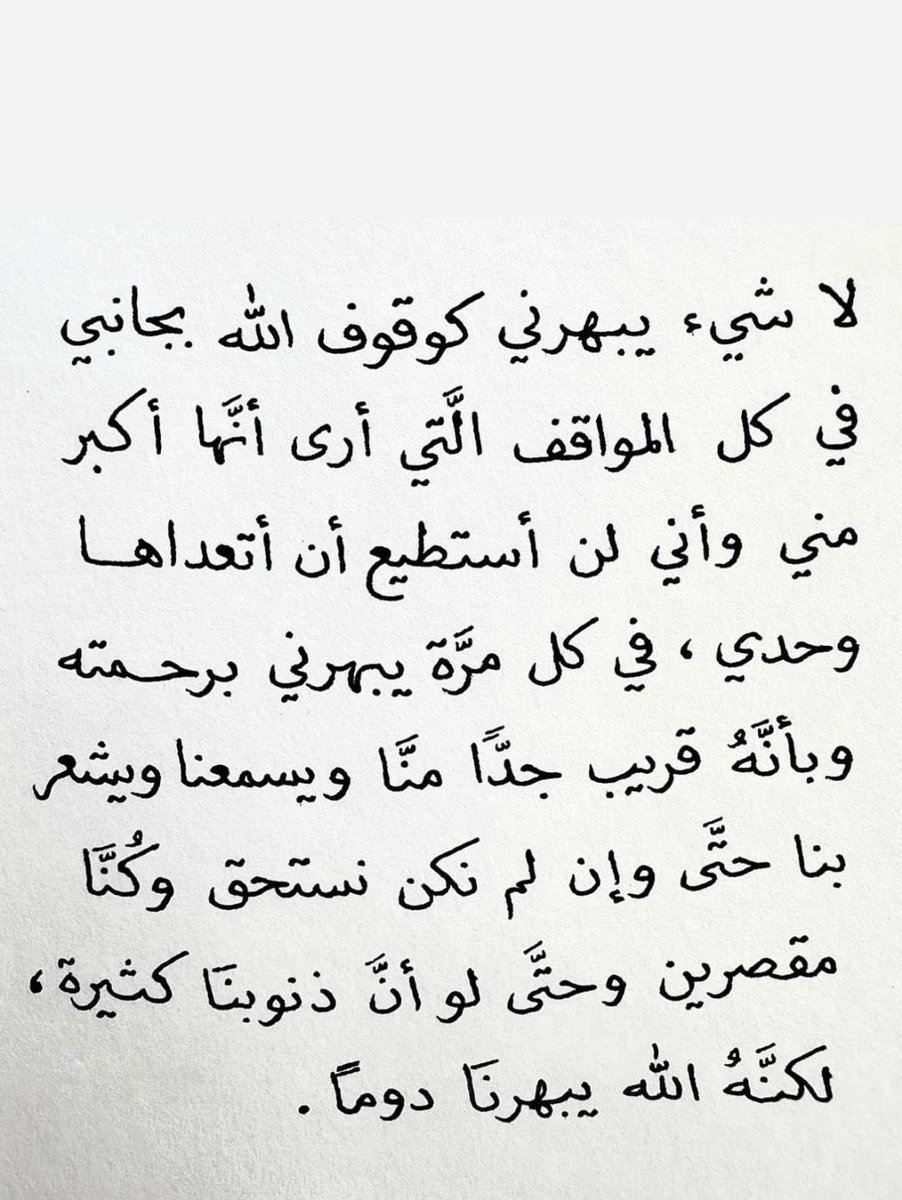 لا شيء يبهرني كوقوف الله بجانبي
في كل المواقف الَّتي أرى أنَّها أكبر
مني وأني لن أستطيع أن أتعداهـا
وحدي ، في كل مرَّة يبهرني برحـمته
وبأنَّهُ قريب جدًّا منَّا ويسمعنا ويشعر
بنا حتَّى وإن لم نكن نستحق وكُنَّا
مقصرين وحتَّى لو أنَّ ذنوبنَا كثيرة ،
لكنَّهُ الله يبهرنَا دوماً .